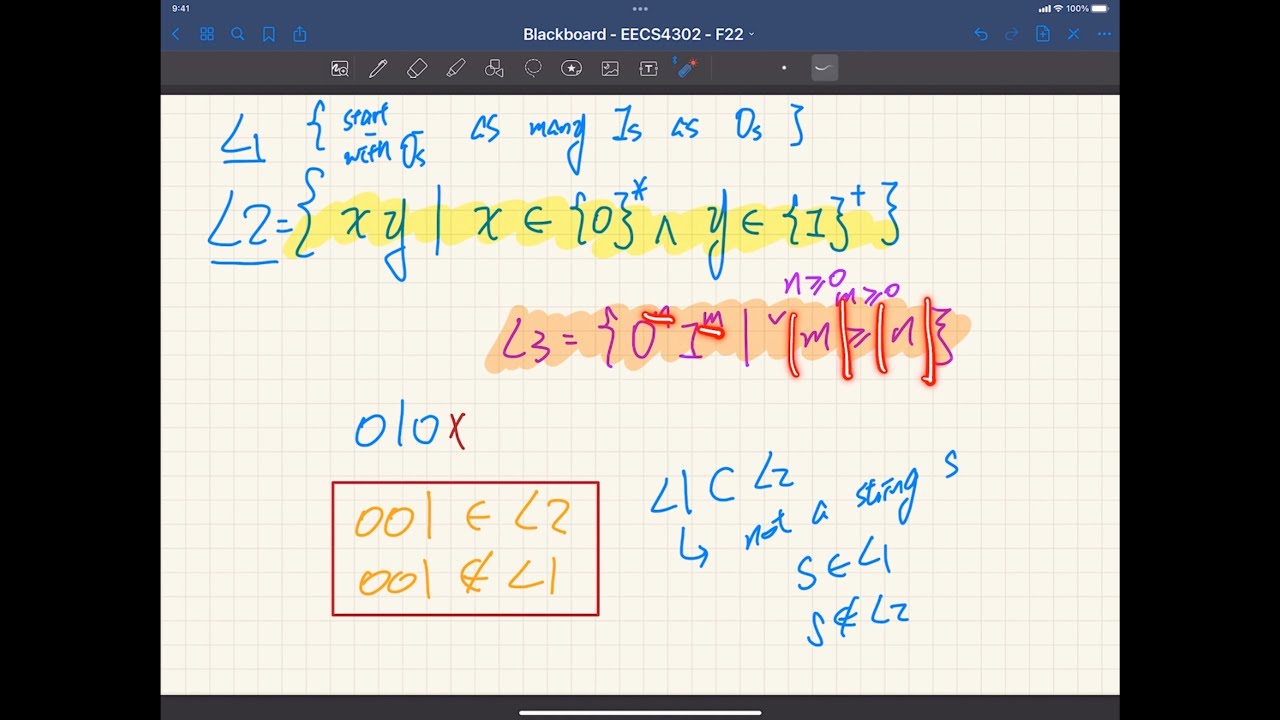 9:41
100%
Blackboard - EECS4302 - F22
L1 { start with 0s as many 1s as 0s }
L2 = { xy | x ∈ {0}* ∧ y ∈ {1}+ }
n ≥ 0
m ≥ 0
L3 = { 0ⁿ 1ᵐ | |m| ≥ |n| }
010 X
L1 ⊂ L2
001 ∈ L2
001 ∉ L1
↳ not a string s
s ∈ L1
s ∉ L2